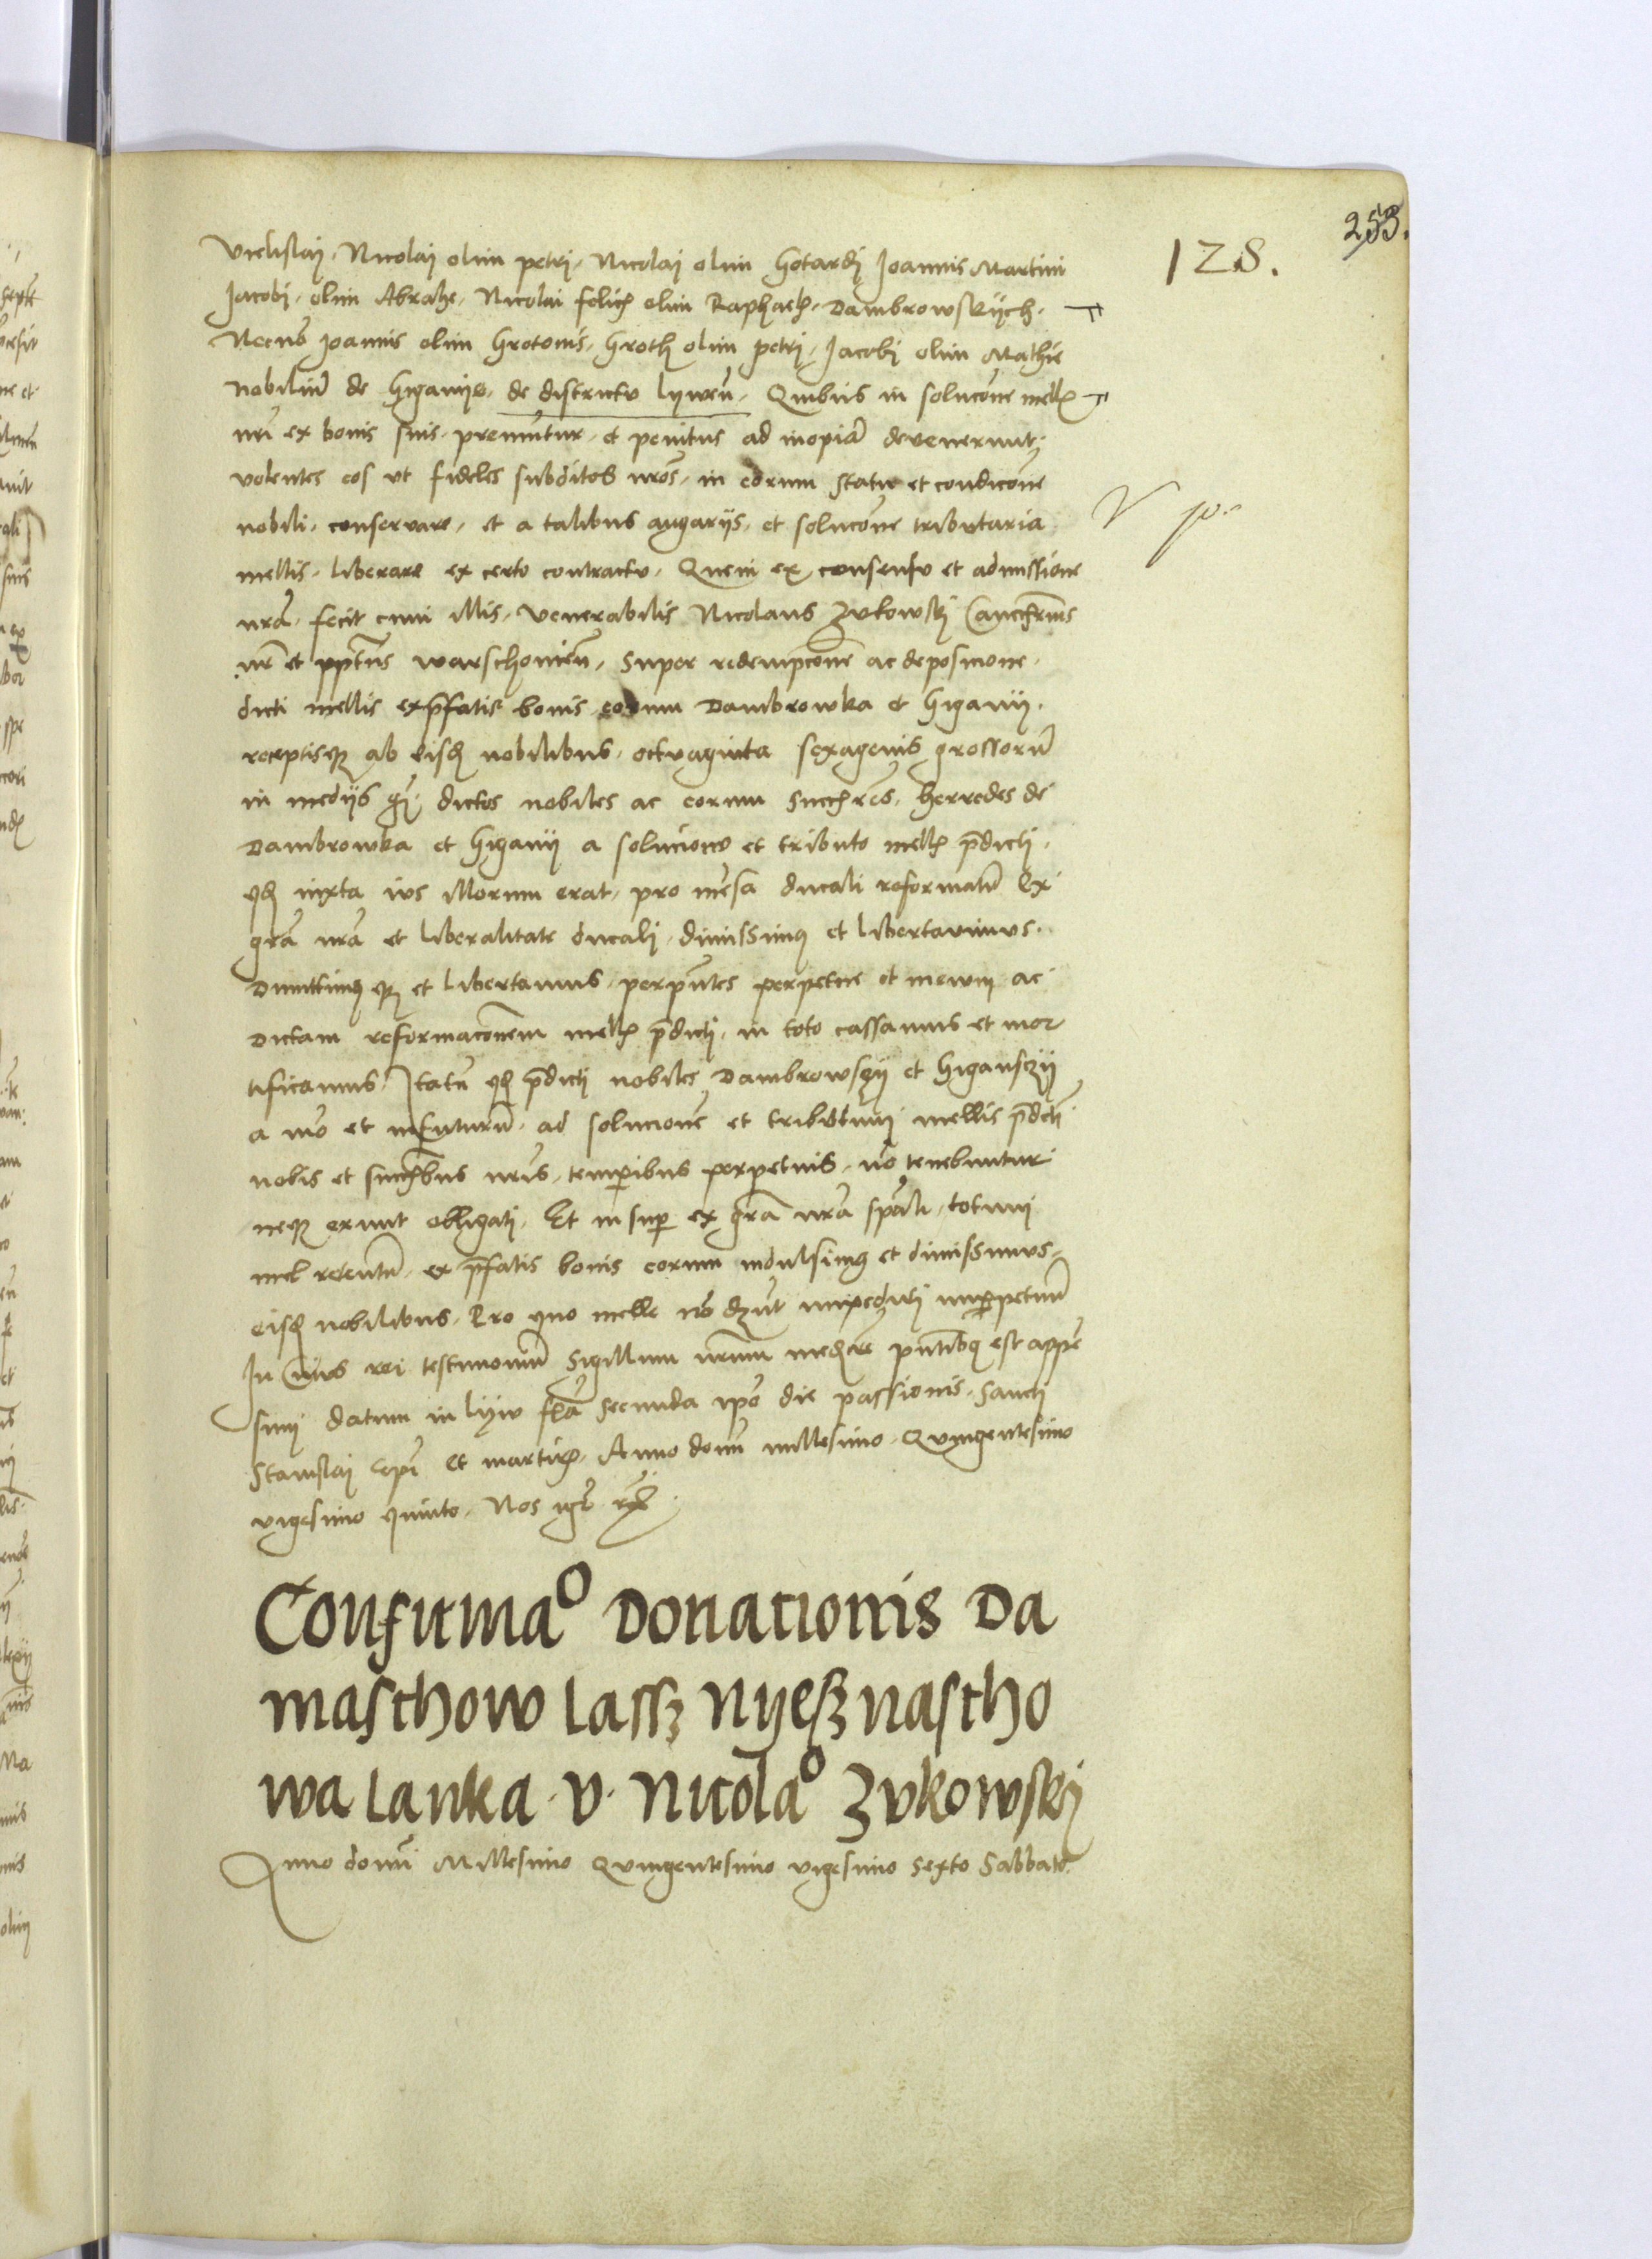 253.
128.
Vielislaij, Nicolaij olim petri, Nicolaij olim Gotardi Joannis Martini
Jacobi, olim Abrahe, Nicolai felicis olim Raphaelis, Dambrowskijch,
Necnō Joannis olim Grotonis, Groth olim petri, Jacobi olim Mathie
nobiliū de Giganijs, de districtu lywen̄, Quibus in solucōne mellis
nr̄i ex bonis suis, premuntur, et penitus ad inopiā devenerunt,
volentes eos ut fideles subditos nr̄os, in eorum statu et condicōne
nobili, conservare, et a talibus angarijs, et solucōne tributaria
mellis, liberare ex certo contractu, Quem ex consensu et admissione
nrā, fecit cum illis, venerabilis Nicolaus Zukowski Canc̄rius
nr̄ et ppt̄us warschowien̄, super redempcōne ac deposicione,
dicti mellis ex pr̄fatis bonis eorum Dambrowka et Giganij,
receptisqꝫ ab eisdē nobilibus, octuaginta sexagenis grossorū
in medijs gr̄, dictos nobiles ac eorum succ̄res, herredes de
Dambrowka et Giganij a solucione et tributo mellis pr̄dicti,
qd̄ iuxta ius illorum erat, pro mēsa ducali reformatū Ex
grā nrā et liberalitate ducali, dimissimꝰ et libertavimus.
Dimittimꝰqꝫ et libertamus, per pn̄tes perpetue et inewū ac
Dictam reformacōnem mellis pr̄dicti, in toto cassamus et mor
tificamus, Itatn̄ qd̄ pr̄dicti nobiles Dambrowsczij et Gigansczij
a mō et infuturū, ad solucionē et tributum mellis pr̄dicti
nobis et succ̄bus nr̄is, temp̄ibus perpetuis, nō tenebuntur
neqꝫ erunt obligatj, Et insup̄ ex grā nrā sp̄ali, totum
mel retentū, ex pr̄fatis bonis eorum indulsimꝰ et dimissimus,
eisdē nobilibus, Pro quo melle nō impediri imperpetuū
In Cuius rei testimoniū Sigillum nr̄um pn̄tibꝰ est appē
sum datum in lijw fr̄ia secunda ip̄o die passionis, sancti
Stanislaj ep̄i et martiris, Anno domī millesimo, Quingentesimo
vigesimo quinto, Nos igt̄
Confirmaº Donationis Da
maschow lassz Nyesznascho
wa lanka v Nicolaº Zvkowskj
Anno domī Millesimo Quingentesimo vigesimo sexto Sabbato